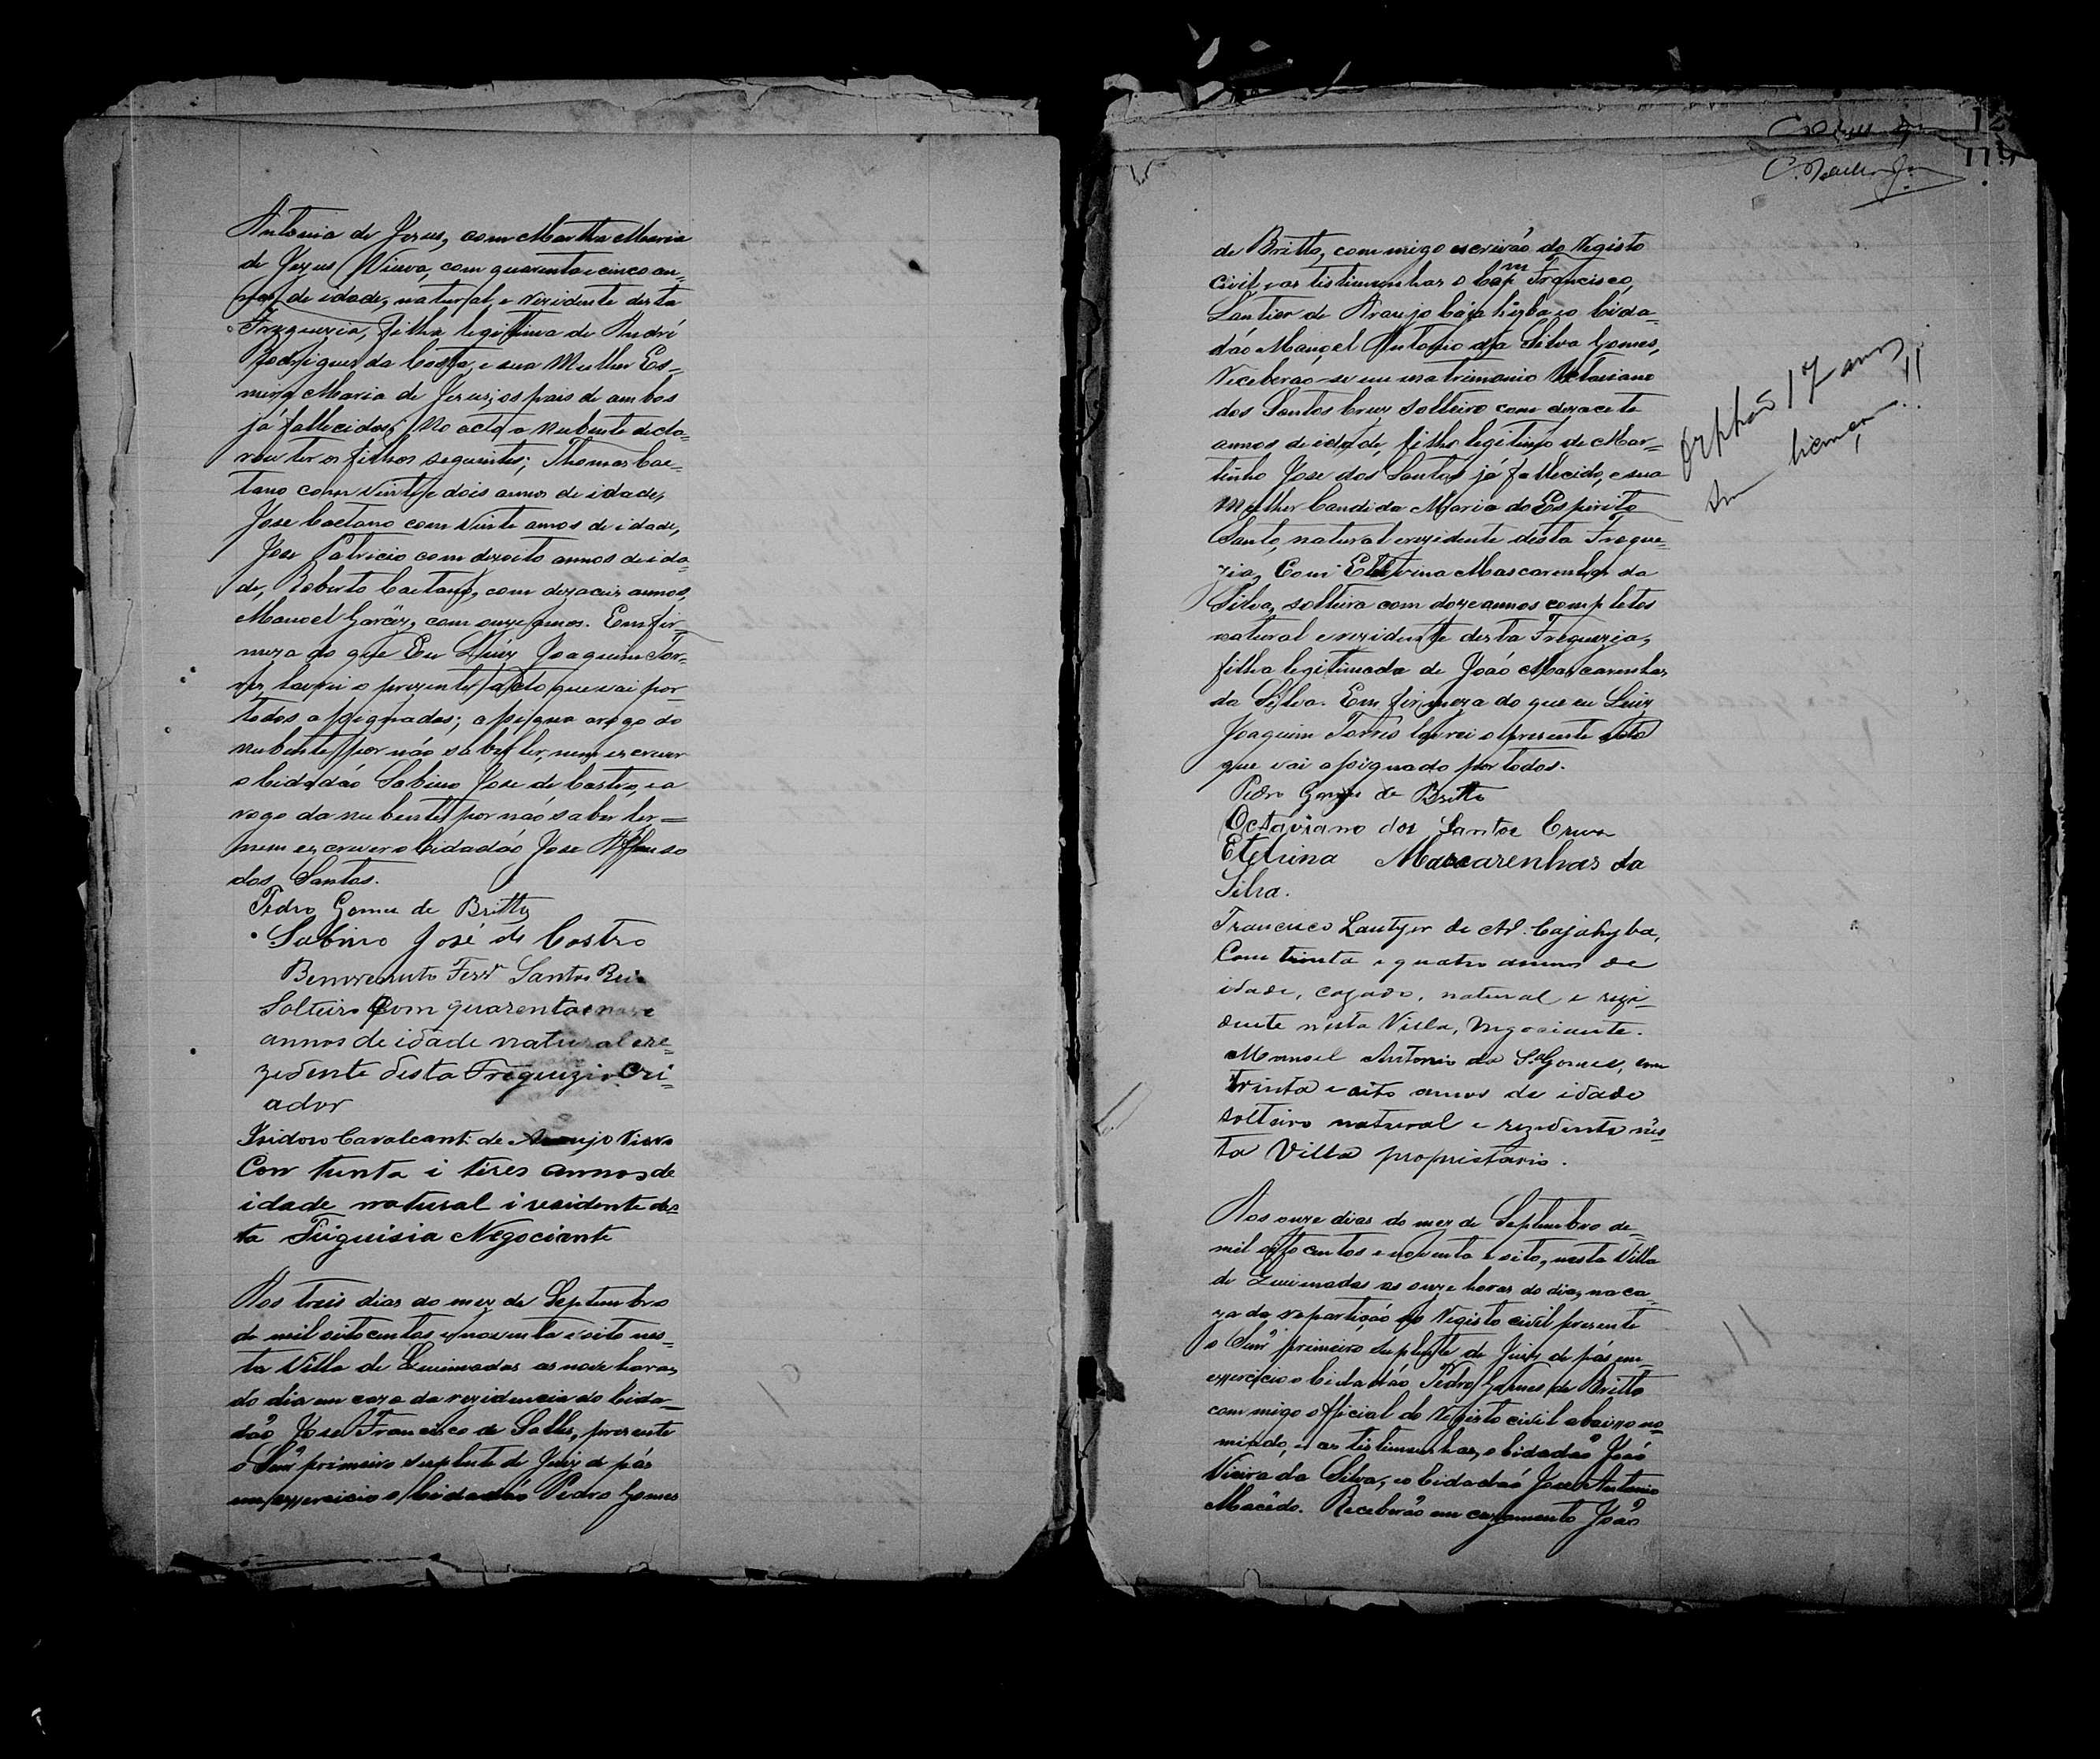 Antonia de Jesus, com Martha Maria
de Jezus Viuva, com quarenta e cinco an-
nos de idade, natural, e rezidente desta
Freguezia, filha legitima de André
Rodrigues da Costa, e sua Mulher Es-
mera Maria de Jesus, os pais de ambos
já fallecidos; No acto o nubente decla-
rou ter os filhos seguintes; Thomas Cae-
tano com vinte e dois annos de idade,
Jose Caetano com vinte annos de idade,
Jose Patricio com dezoito annos de ida-
de, Roberto Caetano, com dezaceis annos,
Manoel Garcêz, com onze annos. Em fir-
meza do que Eu Luiz Joaquim Tor-
res, lavrei o prezente acto que vai por
todos assignados; assigna arogo do
nubente por não saber ler, nem escrever
o Cidadão Sabino Jose de Castro, e a
rogo da nubente por não saber ler =
nem escrever o Cidadão Jose Affonso
dos Santos.
Pedro Gomes de Britto
Sabino José de Castro
Benvenuto Ferr.ª Santos Reis
Solteiro Com quarenta e nove
annos de idade natural e re-
zedente desta Freguezia Cri-
ador
Izidoro Cavalcanti de Araujo Viuvo
Con trinta i tires annos de
idade natural i residente des-
ta Friguisia Negociante
Aos treis dias do mez de Septembro
de mil oitocentos e noventa e oito nes-
ta Villa de Queimadas as nove horas
do dia em caza da rezidencia do Cida-
dão Jose Francisco de Salles, prezente
o Snr primeiro suplente de Juiz de pás
em exxercicio o Cidadão Pedro Gomes
119
de Britto, commigo escrivão do Registo
Civil, e as testimunhas o Cap.m Francisco
Lantier de Araujo Cajahiyba, e o Cida-
dão Manoel Antonio da Silva Gomes,
Receberão-se em matrimonio Octaviano
dos Santos Cruz solteiro com dezacete
annos de idade, filho legitimo de Mar-
tinho Jose dos Santos já fallecido, e sua
Mulher Candida Maria do Espirito
Santo, natural e rezidente desta Fregue-
zia, Com Etelvina Mascarenhas da
Silva, solteira com doze annos completos
natural e rezidente desta Freguezia,
filha legitimada de João Mascarenhas
da Silva. Em firmeza do que eu Luiz
Joaquim Torres lavrei o presente acto
que vai assignado por todos.
Orphão 17 annos
sem licença!!
Pedro Gomes de Britto
Octaviano dos Santos Cruz
Etelvina Mascarenhas da
Silva.
Francisco Lantyer de Ar. Cajahyba,
Com trinta e quatro annos de
idade, cazado, natural e rezi-
dente nesta Villa, Negociante.
Manoel Antonio da S.ª Gomes, com
trinta e oito annos de idade
solteiro natural e rezidente nes-
ta Villa proprietario.
Aos onze dias do mez de Septembro de
mil oitocentos e noventa e oito, nesta Villa
de Queimadas as onze horas do dia, na ca-
za da repartição do Registo civil presente
o Snr primeiro suplente de Juiz de pás em
exxercicio o Cidadão Pedro Gomes de Britto
commigo official do Registo civil abaixo no-
miado, e as testimunhas, o Cidadão João
Vieira da Silva, e o Cidadão Jose Antonio
Macêdo. Receberão em cazamento João